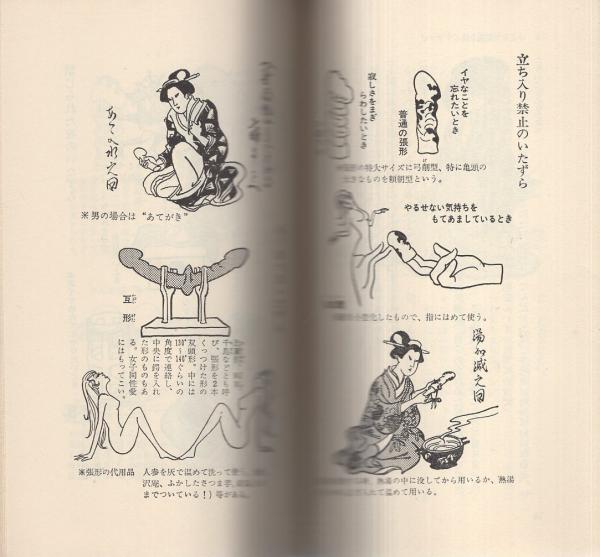 立ち入り禁止のいたずら
イヤなことを
忘れたいとき
普通の張形
寂しさをまぎ
らわしたいとき
の特大サイズに弓削型、特に亀頭の
きなものを頼朝型という。
やるせない気持ちを
もてあましているとき
化したもので、指にはめて使う。
湯加減之図
熱湯の中に没してから用いるか、熱湯
れて温めて用いる。
あての水之図
※男の場合は“あてがき”
互形
び、張形を2本
くっつけた形の
双頭形。中には
130°〜140°ぐらいの
角度で連結し、
中央に鍔を入れ
た形のものもあ
る。女子同性愛
にはもってこい。
※張形の代用品 人参を灰で温めて洗って使う
沢庵、ふかしたさつま芋、
までついている!)等がある。